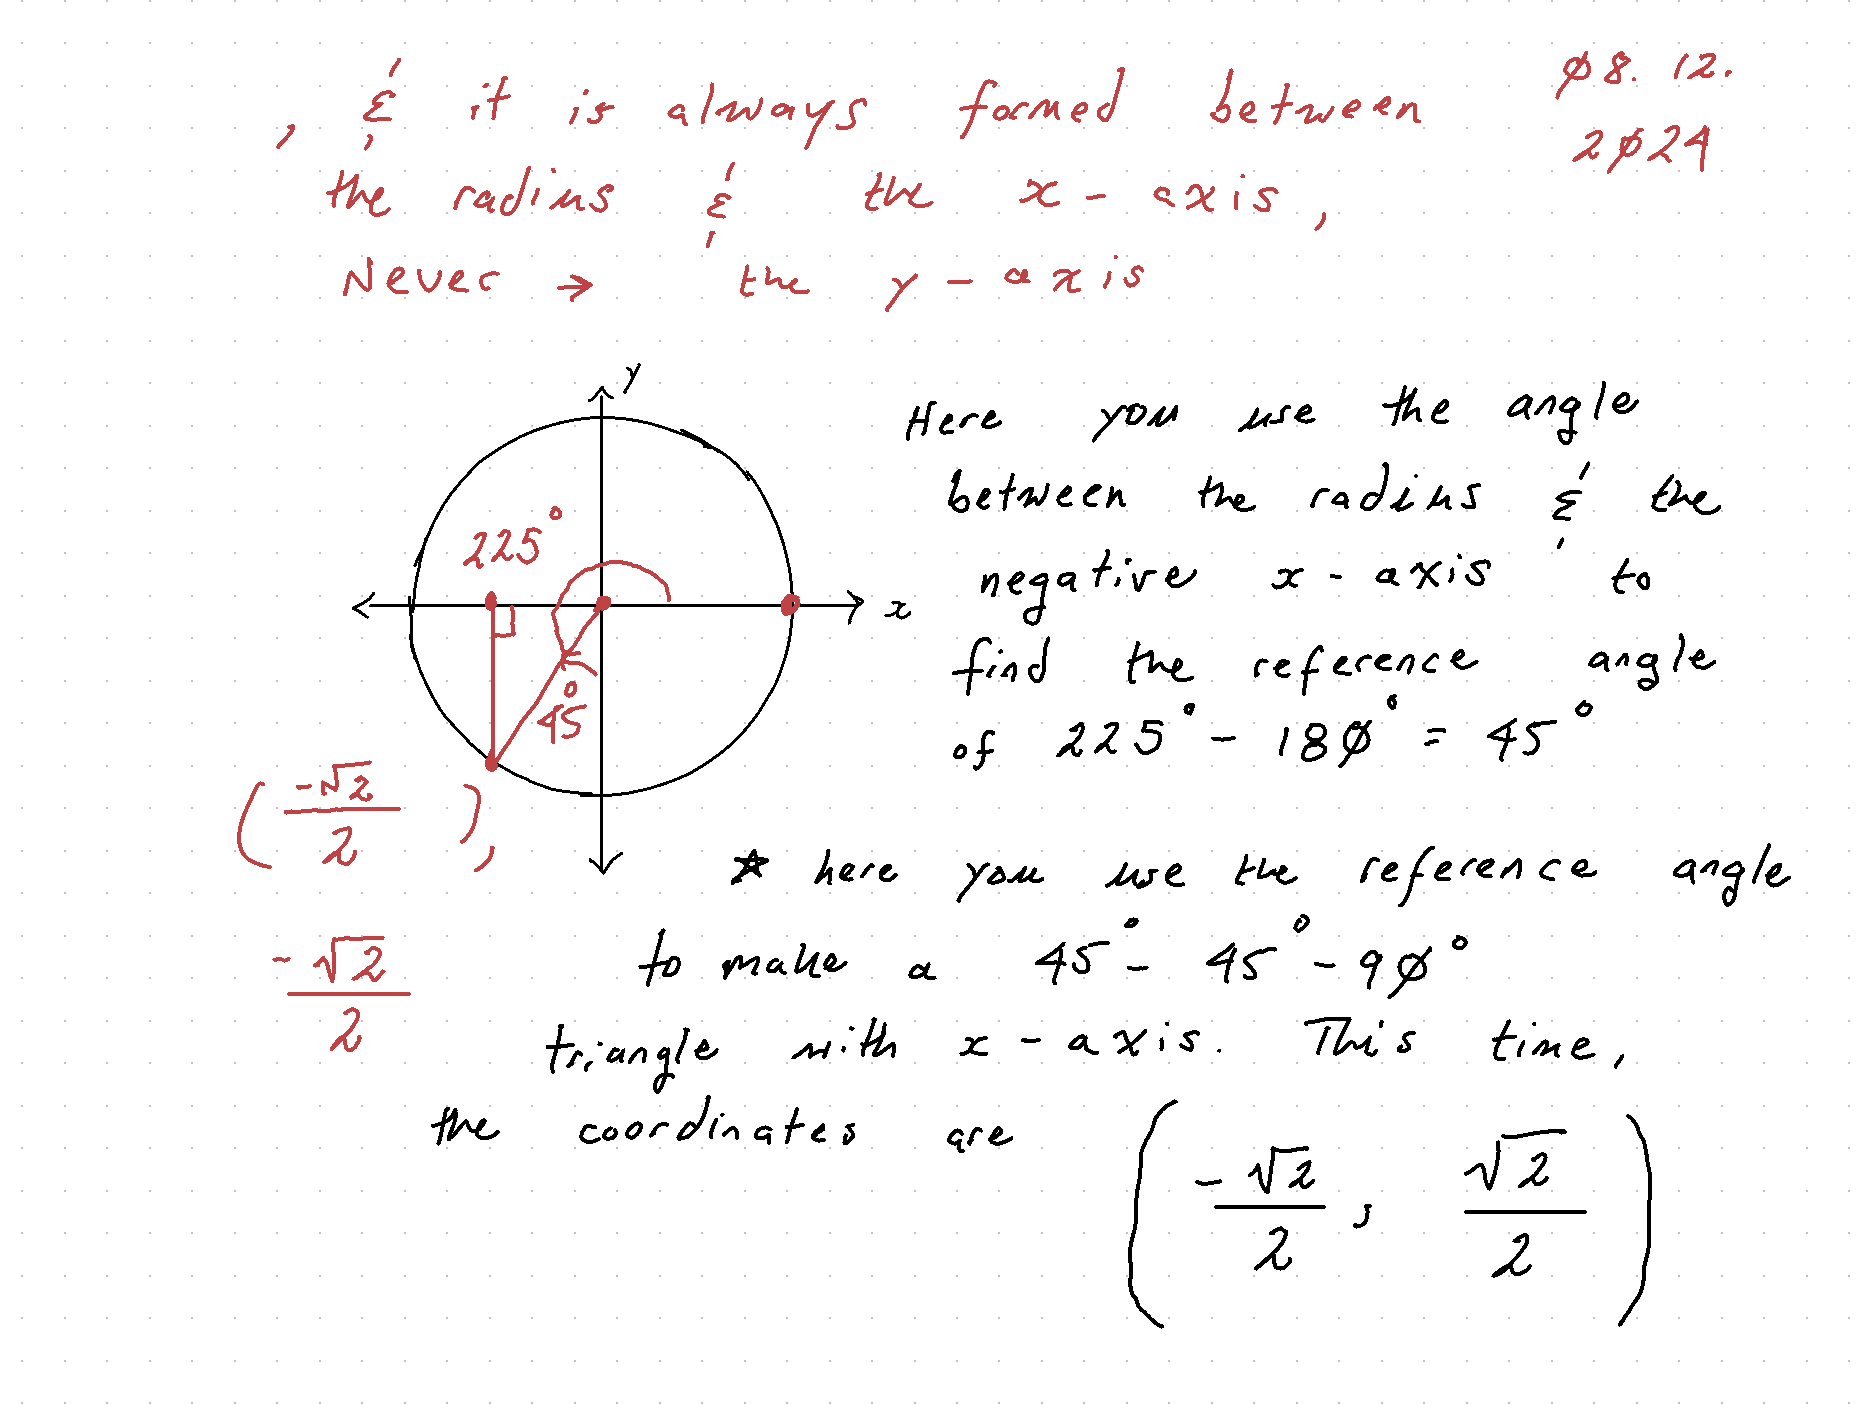 , & it is always formed between
the radius & the x - axis,
Never → the y - axis
ø8. 12.
2ø24
y
225°
x
45°
( -√2/2 ),
-√2/2
Here you use the angle
between the radius & the
negative x - axis to
find the reference angle
of 225° - 18ø° = 45°
★ here you use the reference angle
to make a 45° - 45° - 9ø°
triangle with x - axis. This time,
the coordinates are ( -√2/2 , √2/2 )